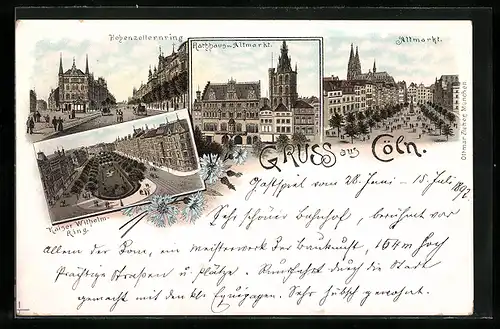 Hohenzollernring
Rathhaus u. Altmarkt.
Altmarkt.
Kaiser Wilhelm-
Ring.
Gruss aus Cöln.
Ottmar Zieher, München
Gastspiel vom 28. Juni - 15. Juli 1897
Sehr schöner Bahnhof, berühmt vor
Allem der Dom, ein Meisterwerk der Baukunst, 164 m hoch
Prächtige Straßen u. Plätze. Rundfahrt durch die Stadt
gemacht mit den Equipagen. Sehr hübsch gewohnt.